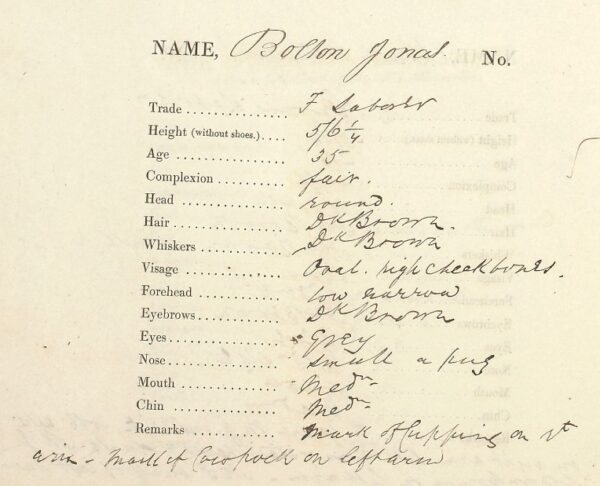 NAME, Bolton Jonas No.
Trade ............... F Laborer
Height (without shoes.).... 5/6 1/4
Age ............... 35
Complexion ............ fair.
Head ............... round.
Hair ............... Dk Brown.
Whiskers ............ Dk Brown
Visage ............ Oval. high cheek bones.
Forehead ............ low narrow
Eyebrows ............ Dk Brown
Eyes ............... Grey
Nose ............... small a pug
Mouth ............ Medm
Chin ............... Medm
Remarks ............ Mark of Cupping on rt
arm - Mark of Cowpock on left arm